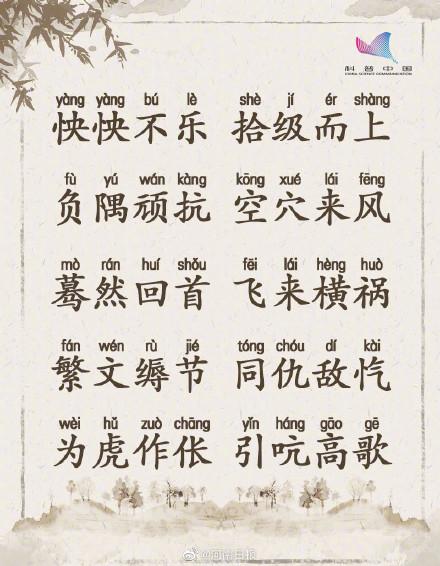 科普中国
CHINA SCIENCE COMMUNICATION
yàng yàng bú lè shè jí ér shàng
怏怏不乐 拾级而上
fù yú wán kàng kōng xué lái fēng
负隅顽抗 空穴来风
mò rán huí shǒu fēi lái hèng huò
蓦然回首 飞来横祸
fán wén rù jié tóng chóu dí kài
繁文缛节 同仇敌忾
wèi hǔ zuò chāng yǐn háng gāo gē
为虎作伥 引吭高歌
@河南日报